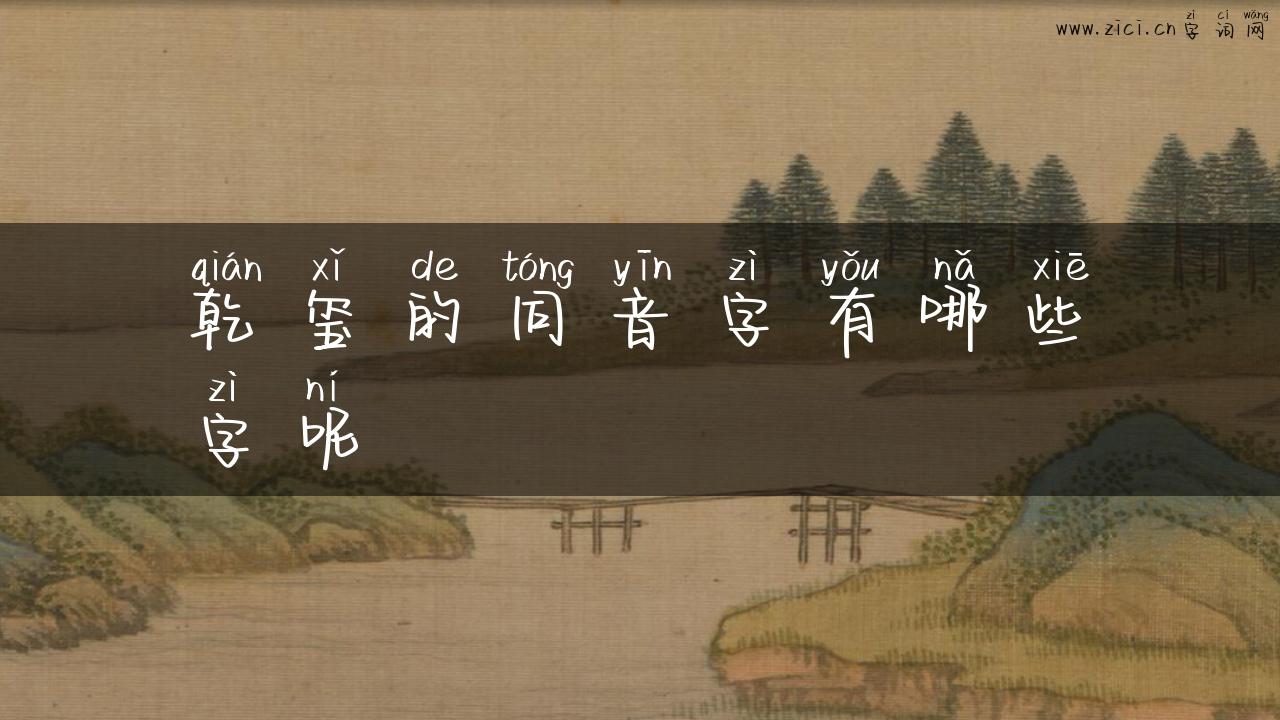 zì cí wǎng
www.zici.cn字词网
qián xǐ de tóng yīn zì yǒu nǎ xiē
乾玺的同音字有哪些
zì ní
字呢